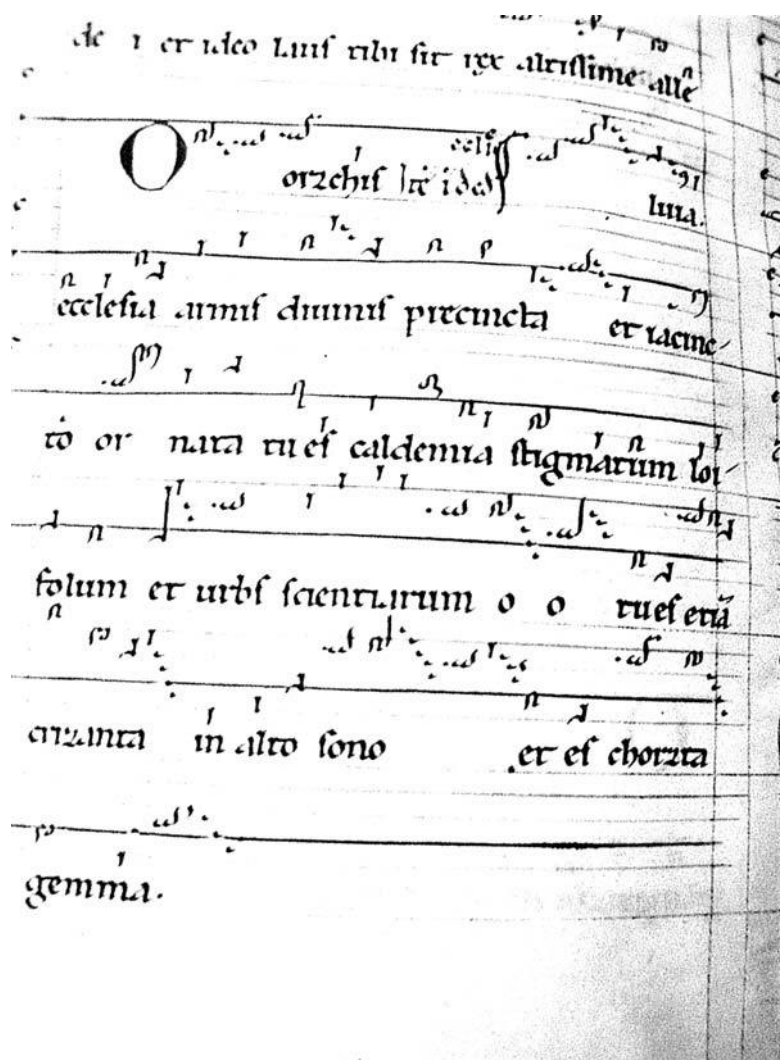 de i et ideo laus tibi sit rex altissime alle
O orzchis ecclesia
luia.
ecclesia armis diuinis precincta et iacinc
to or nata tu es caldemia stigmatum loi
folum et urbs scientiarum o o tu es etiā
crizanta in alto sono et es chorzta
gemma.